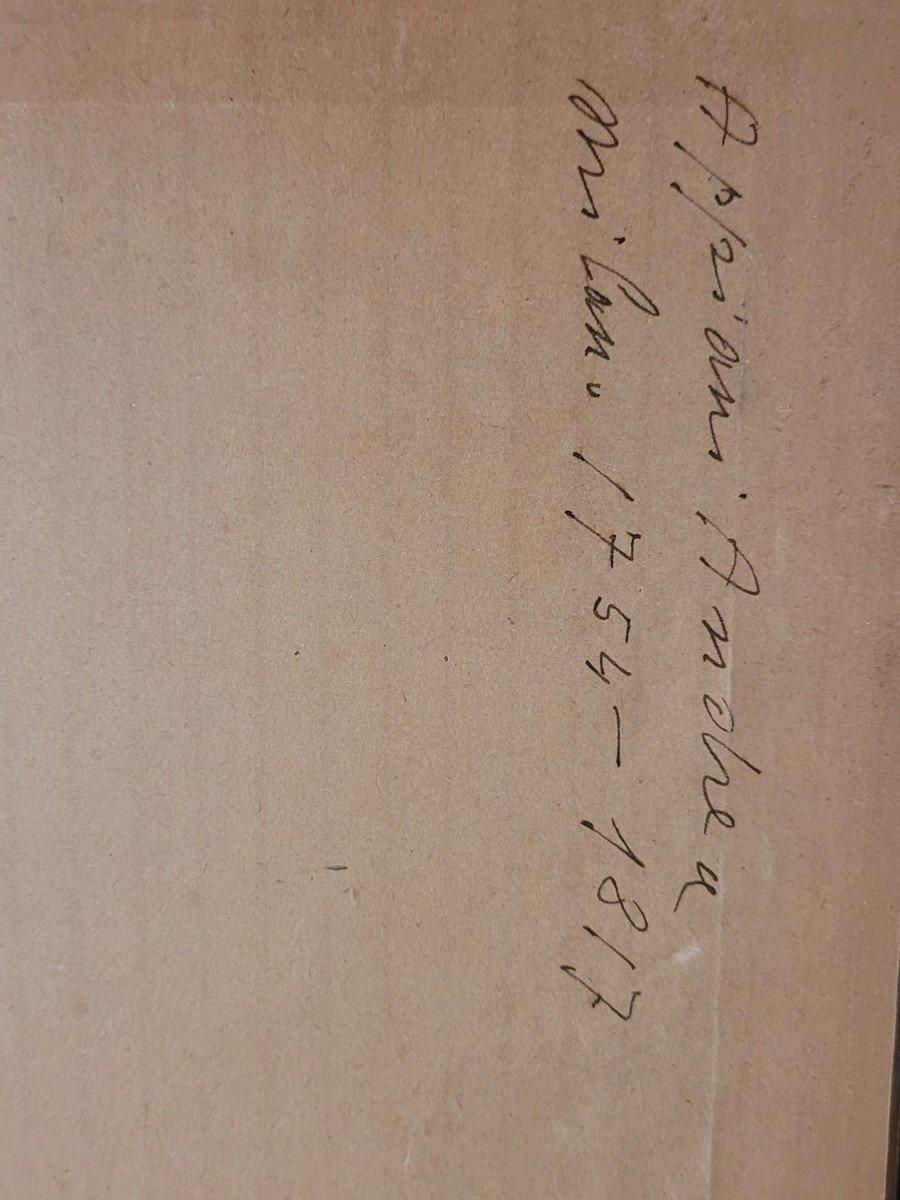 Appiani Andrea
Milano 1754-1817